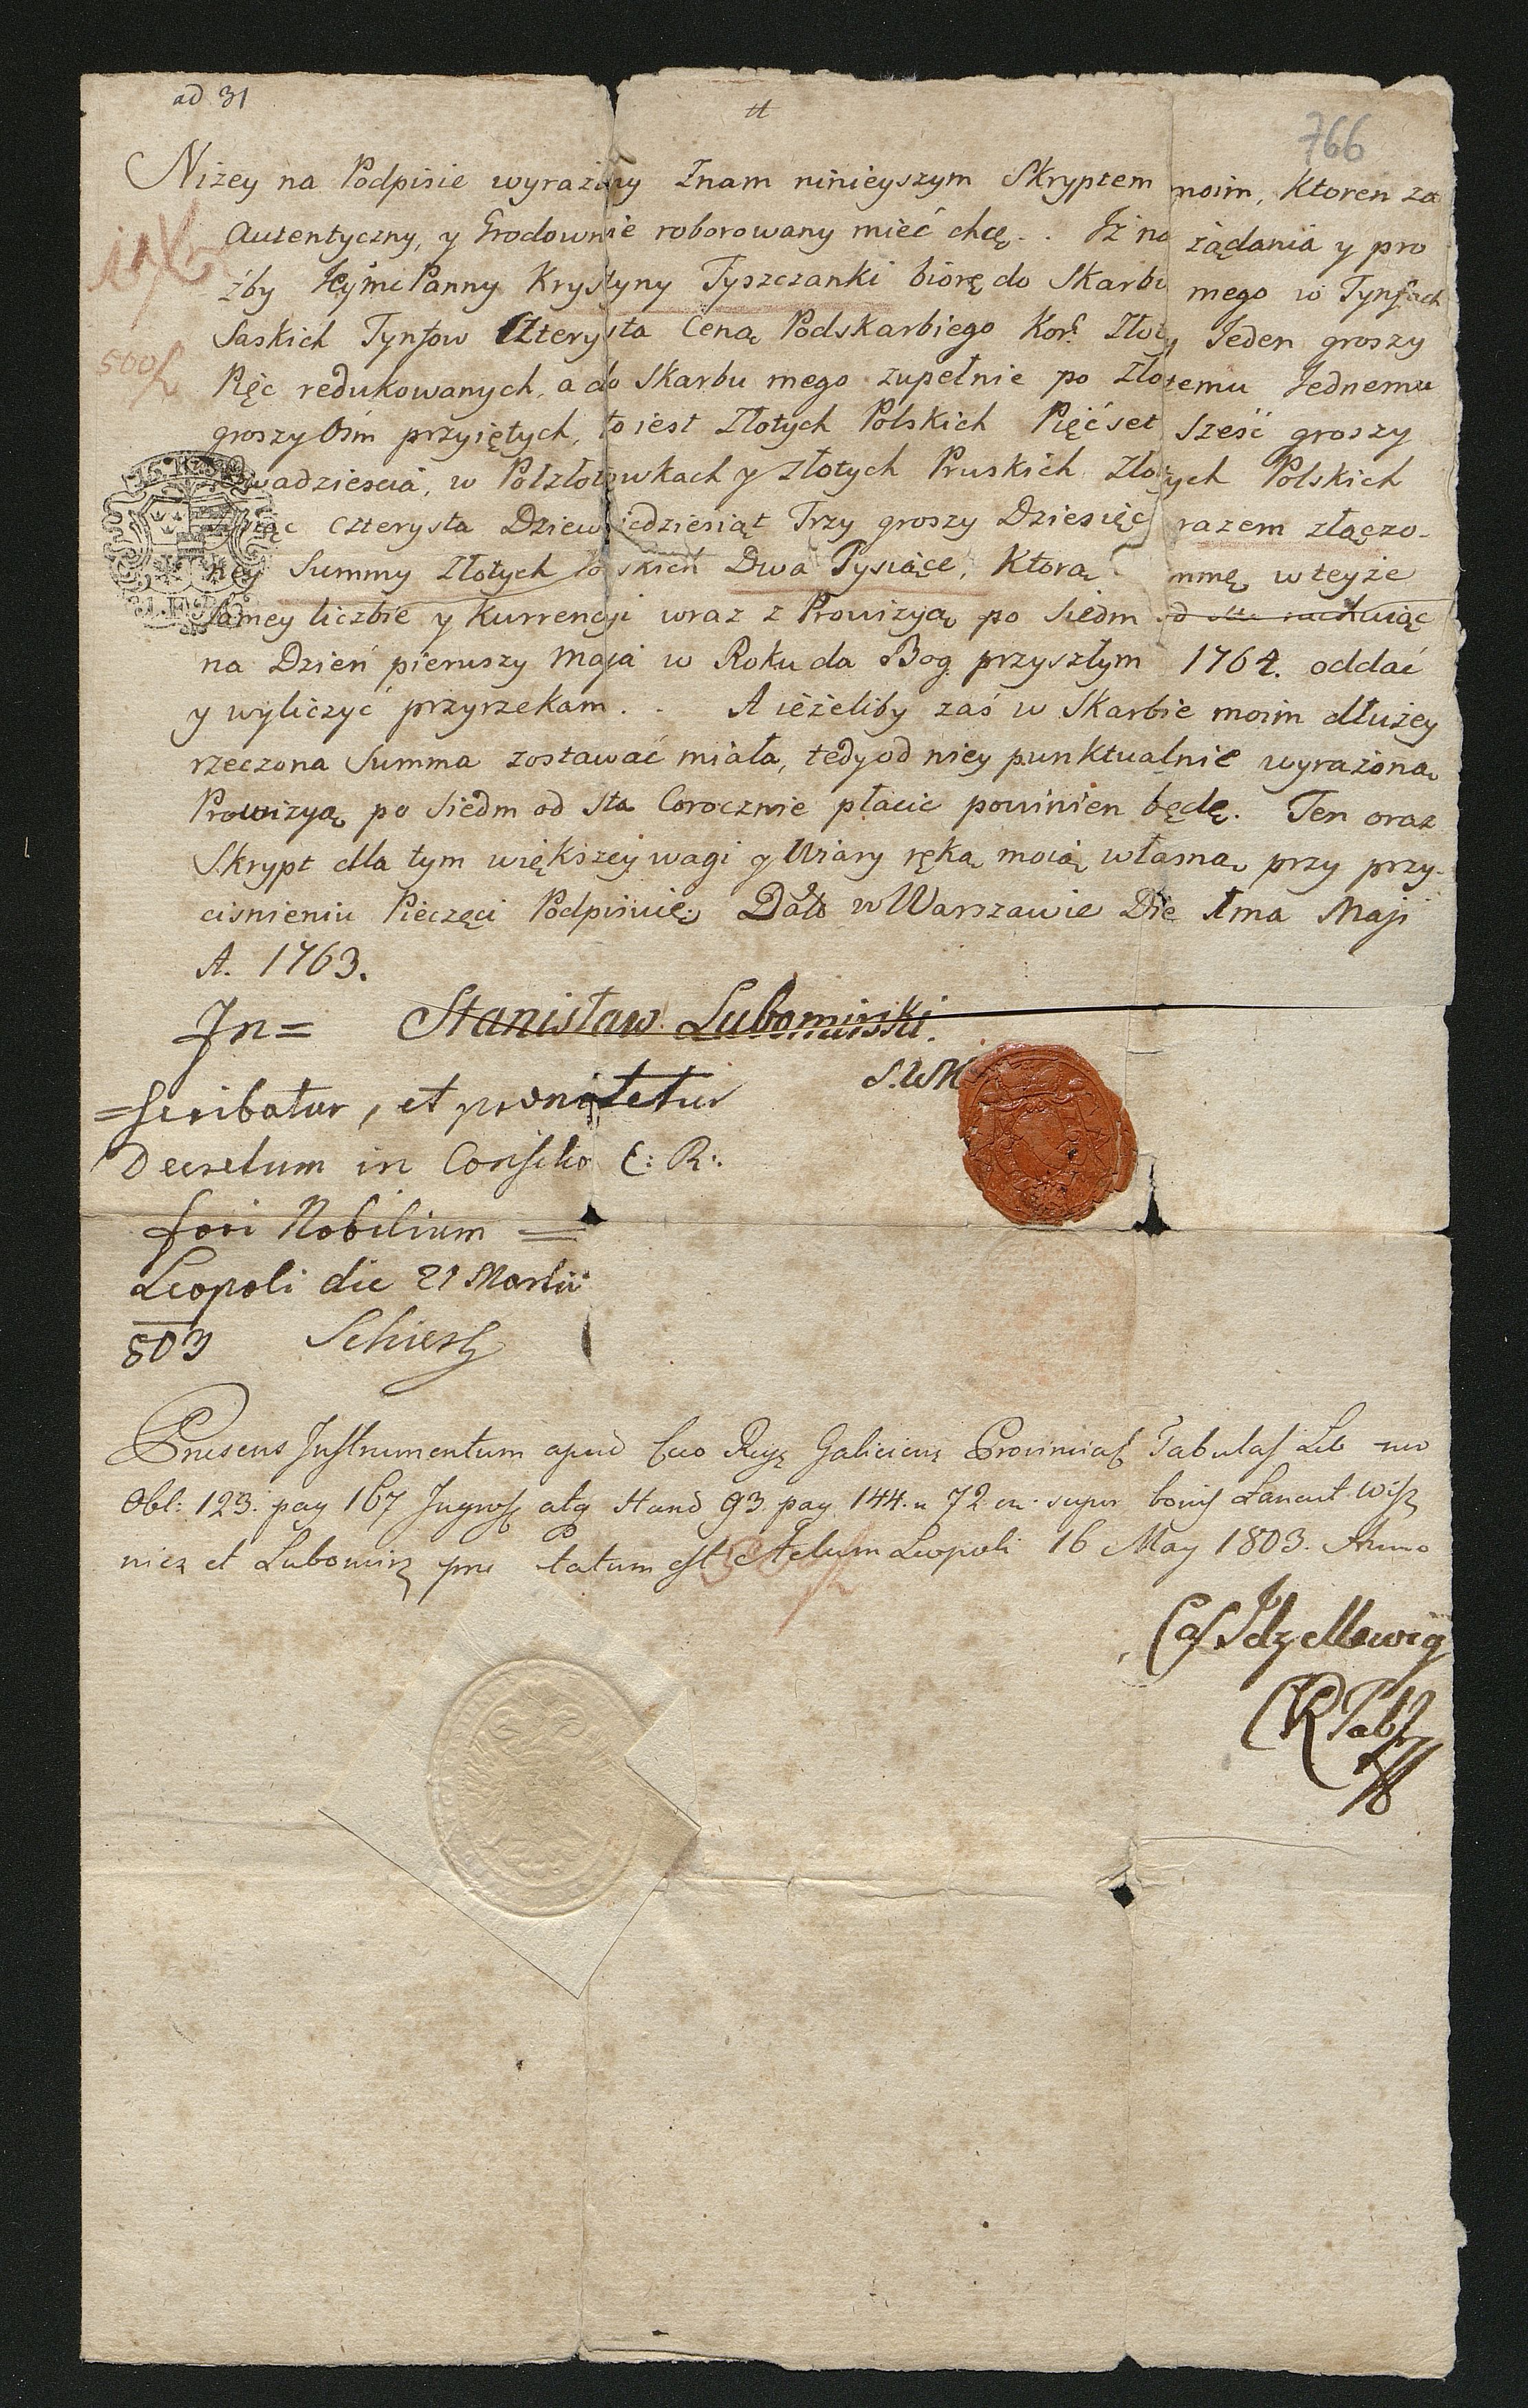 ad 31
tt
766
Niżey na Podpisie wyrażony Znam ninieyszym Skryptem moim, Ktoren za
Autentyczny, y Grodownie roborowany mieć chcę. . Iż na żądania y pro
źby Jeymc Panny Krystyny Tyszczanki biorę do Skarbu mego w Tynfach
Saskich Tynfow Czterysta Ceną Podskarbiego Kor: Złoty Jeden groszy
500
Pięc redukowanych, a do Skarbu mego zupełnie po Złotemu Jednemu
groszy Osm przyiętych, to iest Złotych Polskich Pięćset Sześć groszy
Dwadziescia, w Połzłotowkach y Złotych Pruskich Złotych Polskich
Tysiąc Czterysta Dziewięcdziesiąt Trzy groszy Dziesięć razem złączo-
ney Summy Złotych Polskich Dwa Tysiące, Ktorą Summę w teyże
samey liczbie y Kurrencyi wraz z Prowizyą po Siedm od sta rachuiąc
na Dzień pierwszy Maja w Roku da Bog przyszłym 1764. oddać
y wyliczyć przyrzekam. . A ieżeliby zaś w Skarbie moim dłużey
rzeczona Summa zostawać miała, tedy od niey punktualnie wyrażoną
Prowizyą po Siedm od sta Corocznie płacic powinien będę. Ten oraz
Skrypt dla tym większey wagi y Wiary ręką moią własną przy przy-
cisnieniu Pieczęci Podpisuię; Dało w Warszawie Die 1ma Maji
A. 1763.
In= Stanisław Lubomirski.
S.W.K.
=scribatur, et pronotetur
Decretum in Consilio C: R:
fori Nobilium =
Leopoli die 21 Martii
803 Schiesl
Praesens Instrumentum apud Caeo Regz Galiciens Provincial Tabulas Lib
Obl: 123. pag 167 Ingross atq Hand 93 pag 144. n 72 on. super bonis Łancut Wisz
nicz et Lubomirz tatum est Actum Leopoli 16 May 1803. Anno